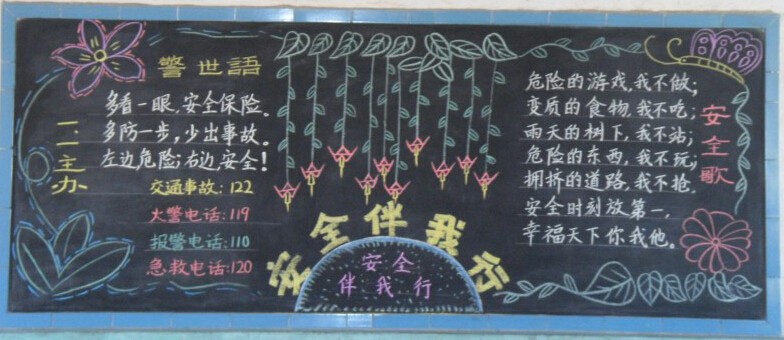 警世語
多看一眼,安全保险。
多防一步,少出事故。
左边危险;右边安全!
交通事故:122
火警电话:119
报警电话:110
急救电话:120
一二主办
安全伴我行
安全
伴我行
危险的游戏,我不做;
变质的食物,我不吃;
雨天的树下,我不站;
危险的东西,我不玩;
拥挤的道路,我不抢。
安全时刻放第一,
幸福天下你我他。
安全歌